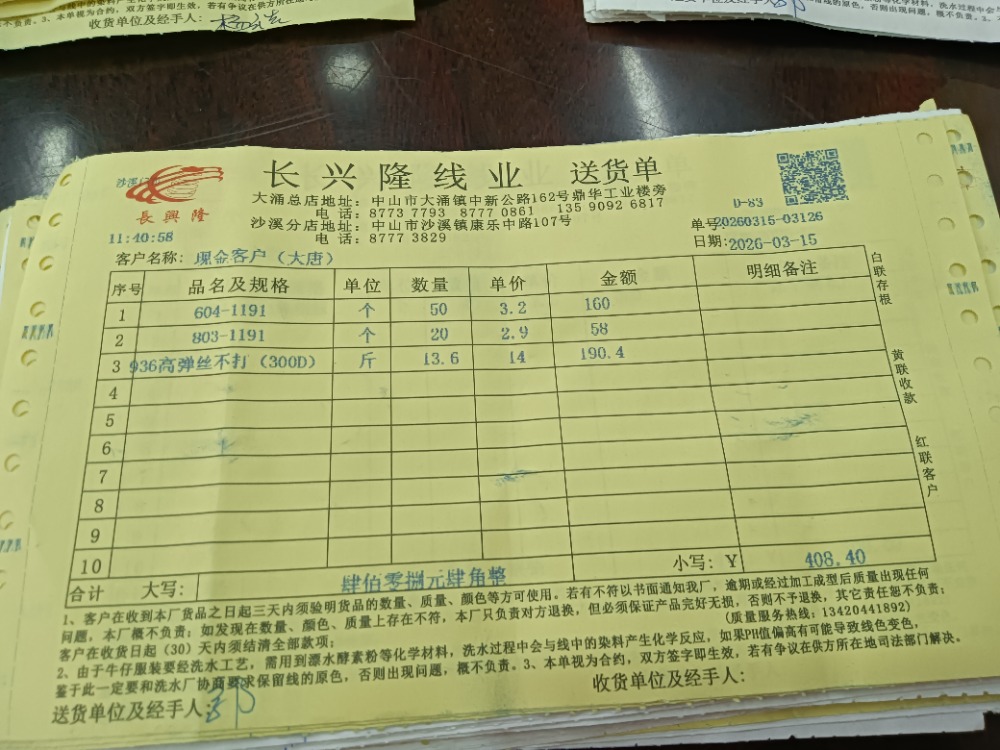 不负责。3、本单视为合约，双方签字即生效，若有争议在供方所在地
收货单位及经手人：
化学材料，洗水过程中会与
的原色，否则出现问题，概不负责。3、
长兴隆线业 送货单
長興隆
沙溪
大涌总店地址：中山市大涌镇中新公路162号鼎华工业楼旁
电话：8773 7793 8777 0861 135 9092 6817
沙溪分店地址：中山市沙溪镇康乐中路107号
电话：8777 3829
D-83
单号：20260315-03126
日期：2026-03-15
11:40:58
客户名称：现金客户（大唐）
序号 品名及规格 单位 数量 单价 金额 明细备注
1 604-1191 个 50 3.2 160
2 803-1191 个 20 2.9 58
3 936高弹丝不打（300D） 斤 13.6 14 190.4
4
5
6
7
8
9
10
小写：Y 408.40
合计 大写： 肆佰零捌元肆角整
白联存根
黄联收款
红联客户
1、客户在收到本厂货品之日起三天内须验明货品的数量、质量、颜色等方可使用。若有不符以书面通知我厂，逾期或经过加工成型后质量出现任何
问题，本厂概不负责；如发现在数量、颜色、质量上存在不符，本厂只负责对方退换，但必须保证产品完好无损，否则不予退换，其它责任恕不负责；
客户在收货日起（30）天内须结清全部款项；
(质量服务热线：13420441892)
2、由于牛仔服装要经洗水工艺，需用到漂水酵素粉等化学材料，洗水过程中会与线中的染料产生化学反应，如果PH值偏高有可能导致线色变色，
鉴于此一定要和洗水厂协商要求保留线的原色，否则出现问题，概不负责。3、本单视为合约，双方签字即生效，若有争议在供方所在地司法部门解决。
送货单位及经手人：
收货单位及经手人：